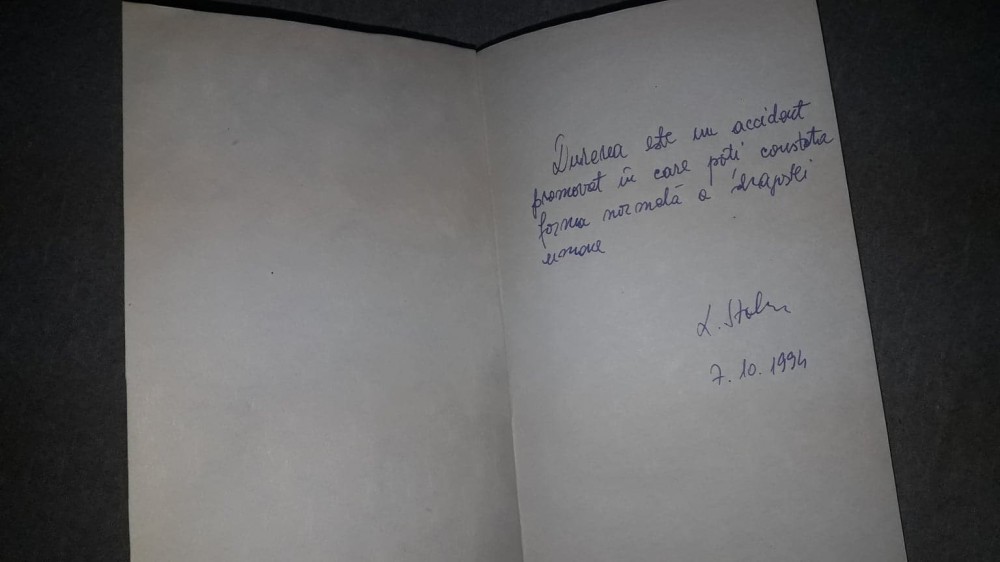 Durerea este un accident
promovat în care poți constata
forma normală a
umane
7.10.1994